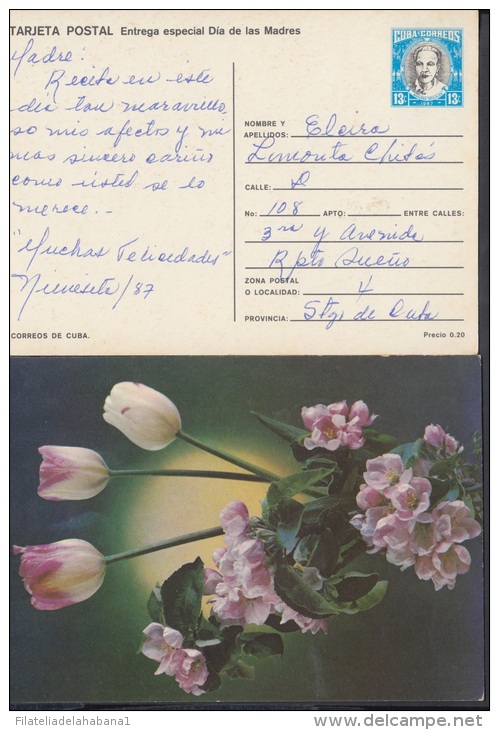 TARJETA POSTAL Entrega especial Día de las Madres
Madre:
Reciba en este
día tan maravillo
so mis afectos y mi
mas sincero cariño
como usted se lo
merece.-
"Muchas Felicidades"
/87
CORREOS DE CUBA.
CUBA-CORREOS
13c 1987 13c
NOMBRE Y
APELLIDOS: Elcira
Limonta Chibás
CALLE: D
No: 108 APTO: ENTRE CALLES:
3ra y Avenida
Rpto Sueño
ZONA POSTAL
O LOCALIDAD: 4
PROVINCIA: Stgo de Cuba
Precio 0.20
Filateliadelahabana1
delcampe.net